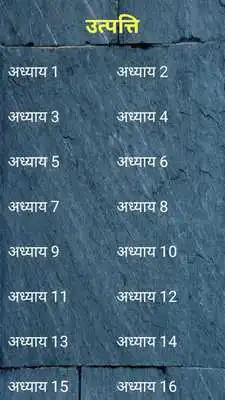 उत्पत्ति
अध्याय 1 अध्याय 2
अध्याय 3 अध्याय 4
अध्याय 5 अध्याय 6
अध्याय 7 अध्याय 8
अध्याय 9 अध्याय 10
अध्याय 11 अध्याय 12
अध्याय 13 अध्याय 14
अध्याय 15 अध्याय 16